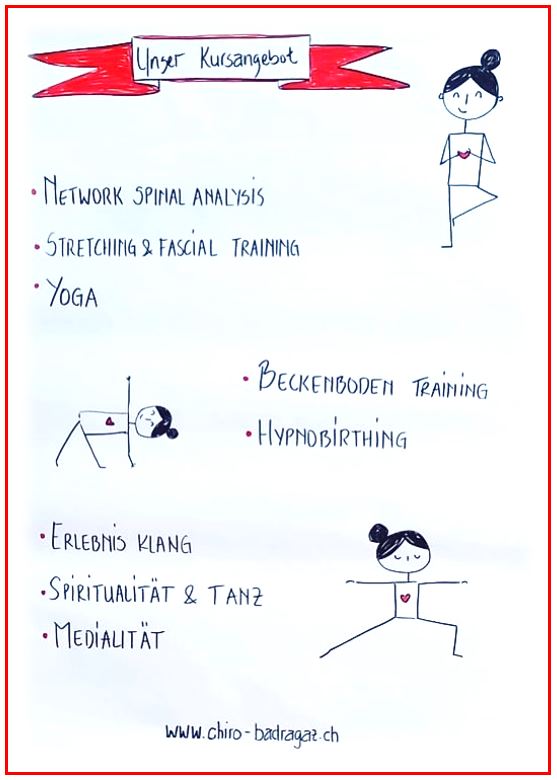 Unser Kursangebot
• NETWORK SPINAL ANALYSIS
• STRETCHING & FASCIAL TRAINING
• YOGA
• BECKENBODEN TRAINING
• HYPNOBIRTHING
• ERLEBNIS KLANG
• SPIRITUALITÄT & TANZ
• MEDIALITÄT
www.chiro-badragaz.ch